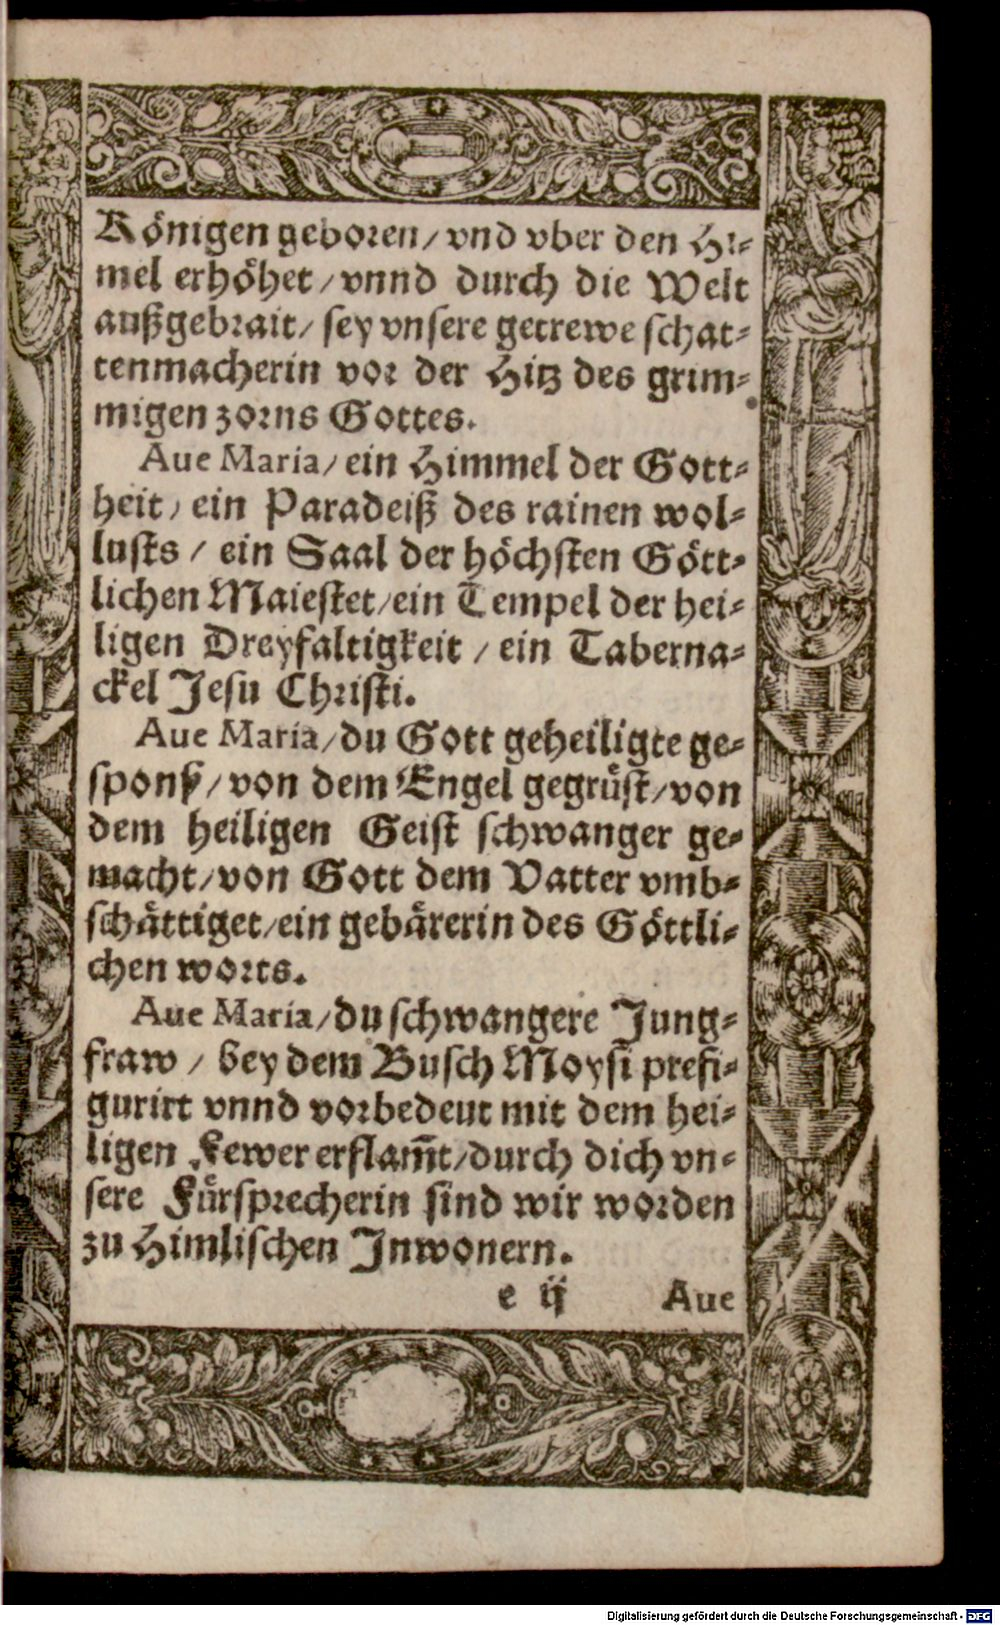 Königen geboren/ vnd vber den Hi-
mel erhöhet/ vnnd durch die Welt
außgebrait/ sey vnsere getrewe schat-
tenmacherin vor der Hitz des grim-
migen zorns Gottes.
Aue Maria/ ein Himmel der Gott-
heit/ ein Paradeiß des rainen wol-
lusts/ ein Saal der höchsten Gött-
lichen Maiestet/ ein Tempel der hei-
ligen Dreyfaltigkeit/ ein Taberna-
ckel Jesu Christi.
Aue Maria/ du Gott geheiligte ge-
sponß/ von dem Engel gegrüst/ von
dem heiligen Geist schwanger ge-
macht/ von Gott dem Vatter vmb-
schättiget/ ein gebärerin des Göttli-
chen worts.
Aue Maria/ du schwangere Jung-
fraw/ bey dem Busch Moysi prefi-
gurirt vnnd vorbedeut mit dem hei-
ligen Fewer erflam̄t/ durch dich vn-
sere Fürsprecherin sind wir worden
zu Himlischen Inwonern.
e ij Aue
Digitalisierung gefördert durch die Deutsche Forschungsgemeinschaft - DFG